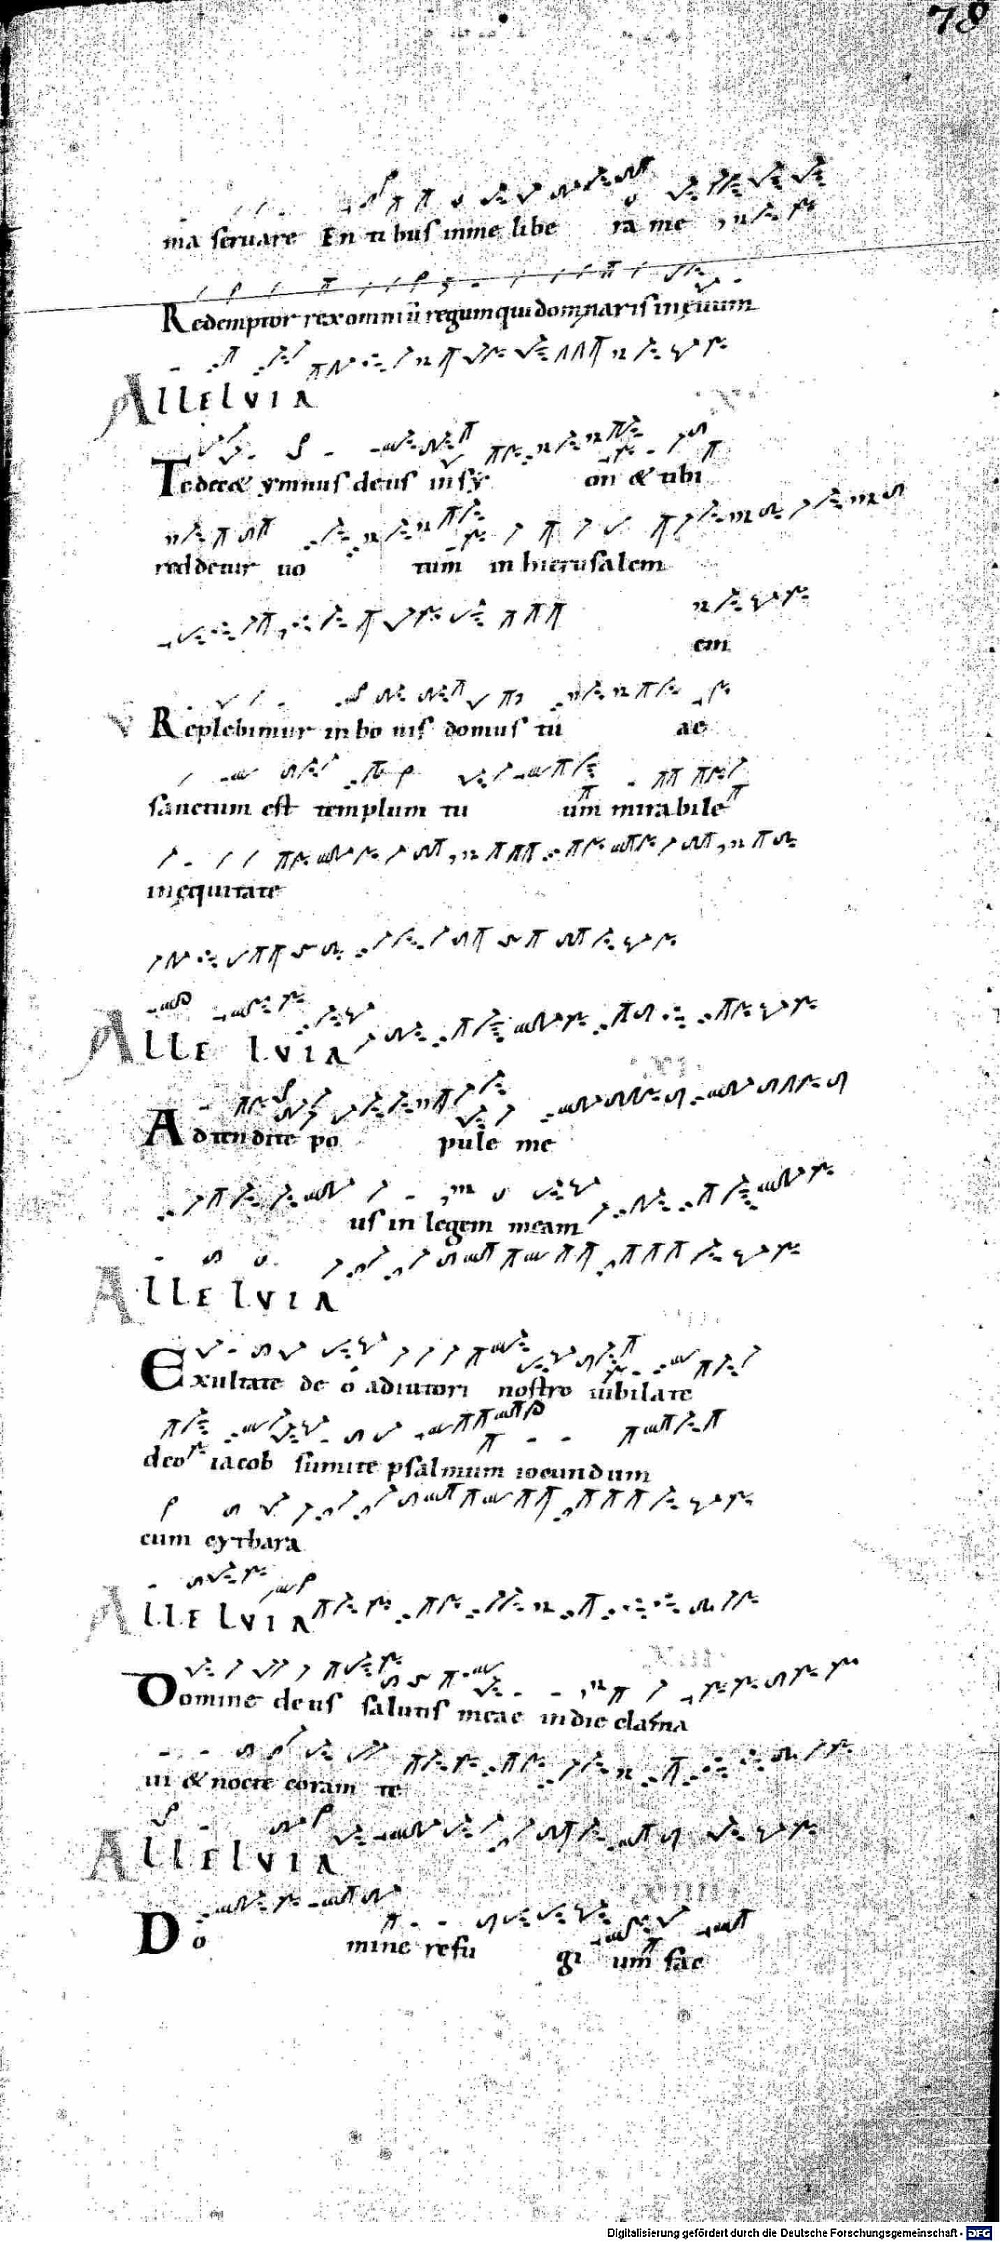 78
ma seruare En ti bus inme libe ra me
Redemptor rex omniū regum qui dominaris in ęuum
ALLELVIA
Te decet ymnus deus in sy on & tibi
reddetur uo tum in hierusalem
em
V Replebimur in bo nis domus tu ae
sanctum est templum tu um mirabile
in ęquitate
ALLE LVIA
Adtendite po pule me
us in legem meam
ALLELVIA
Exultate de o adiutori nostro iubilate
deo iacob sumite psalmum iocundum
cum cythara
ALLELVIA
Domine deus salutis meae in die clama
ui & nocte coram te
ALLELVIA
Do mine refu gi um fac
Digitalisierung gefördert durch die Deutsche Forschungsgemeinschaft - DFG